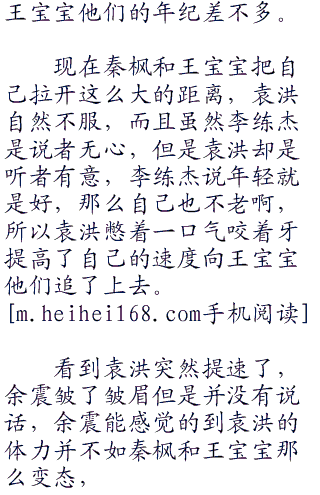 王宝宝他们的年纪差不多。
现在秦枫和王宝宝把自
己拉开这么大的距离，袁洪
自然不服，而且虽然李练杰
是说者无心，但是袁洪却是
听者有意，李练杰说年轻就
是好，那么自己也不老啊，
所以袁洪憋着一口气咬着牙
提高了自己的速度向王宝宝
他们追了上去。
[m.heihei168.com手机阅读]
看到袁洪突然提速了，
余震皱了皱眉但是并没有说
话，余震能感觉的到袁洪的
体力并不如秦枫和王宝宝那
么变态，